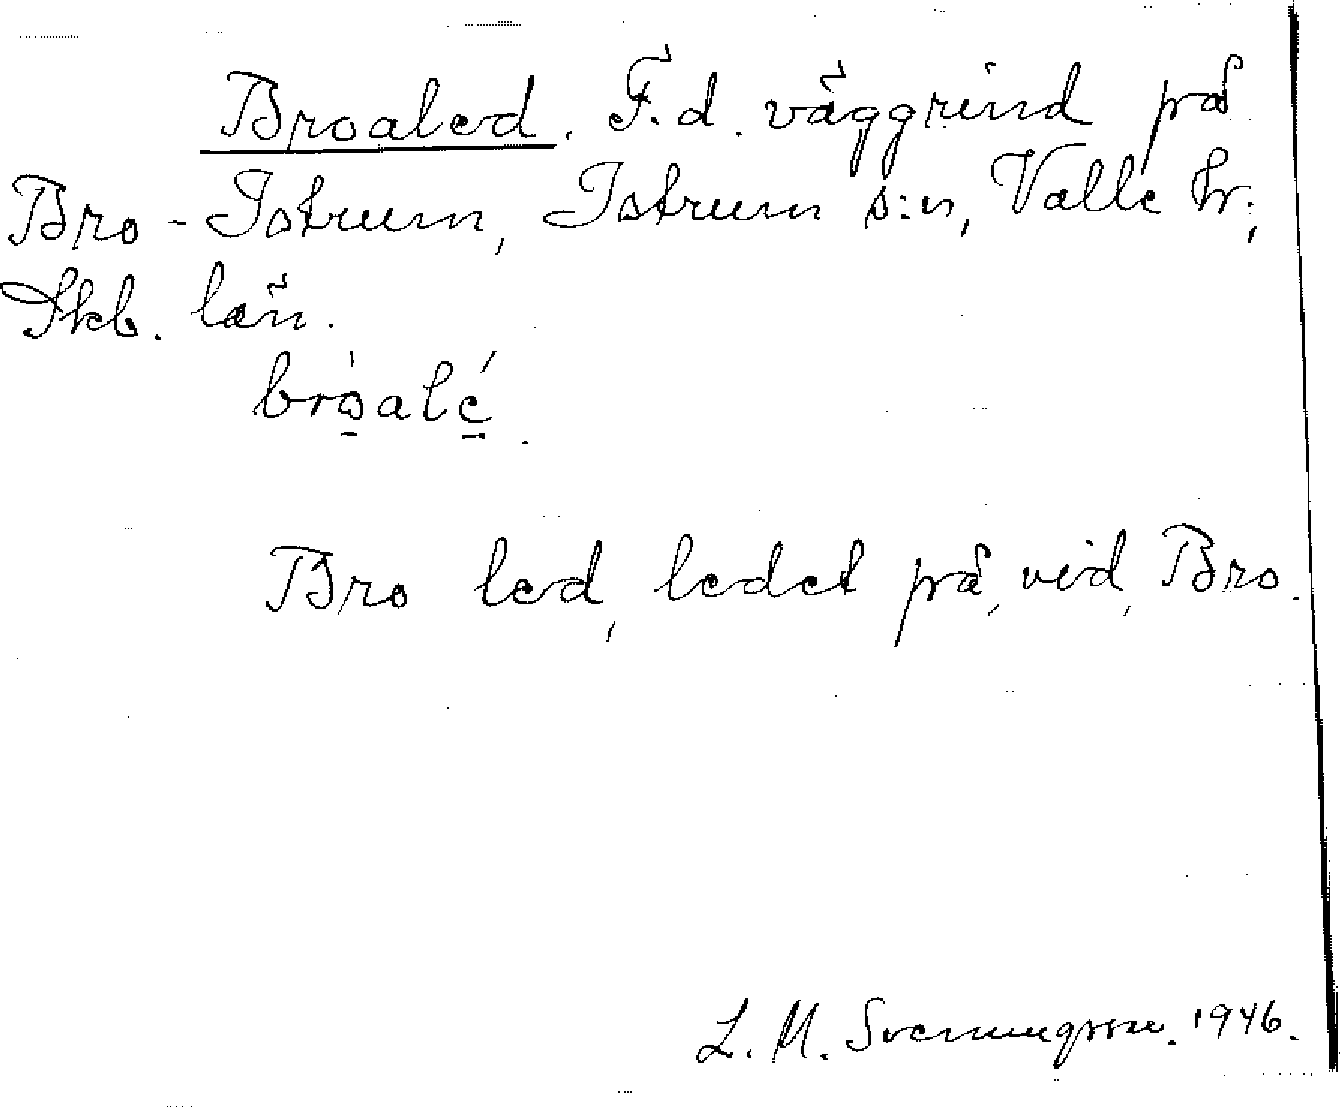 Broaled. F.d. väggrind på
Bro - Istrum, Istrum s:n, Valle hr;
Skb. län.
bro̱´ale̱´.
Bro led, ledet på, vid, Bro.
L. M. Svenungsson. 1946.